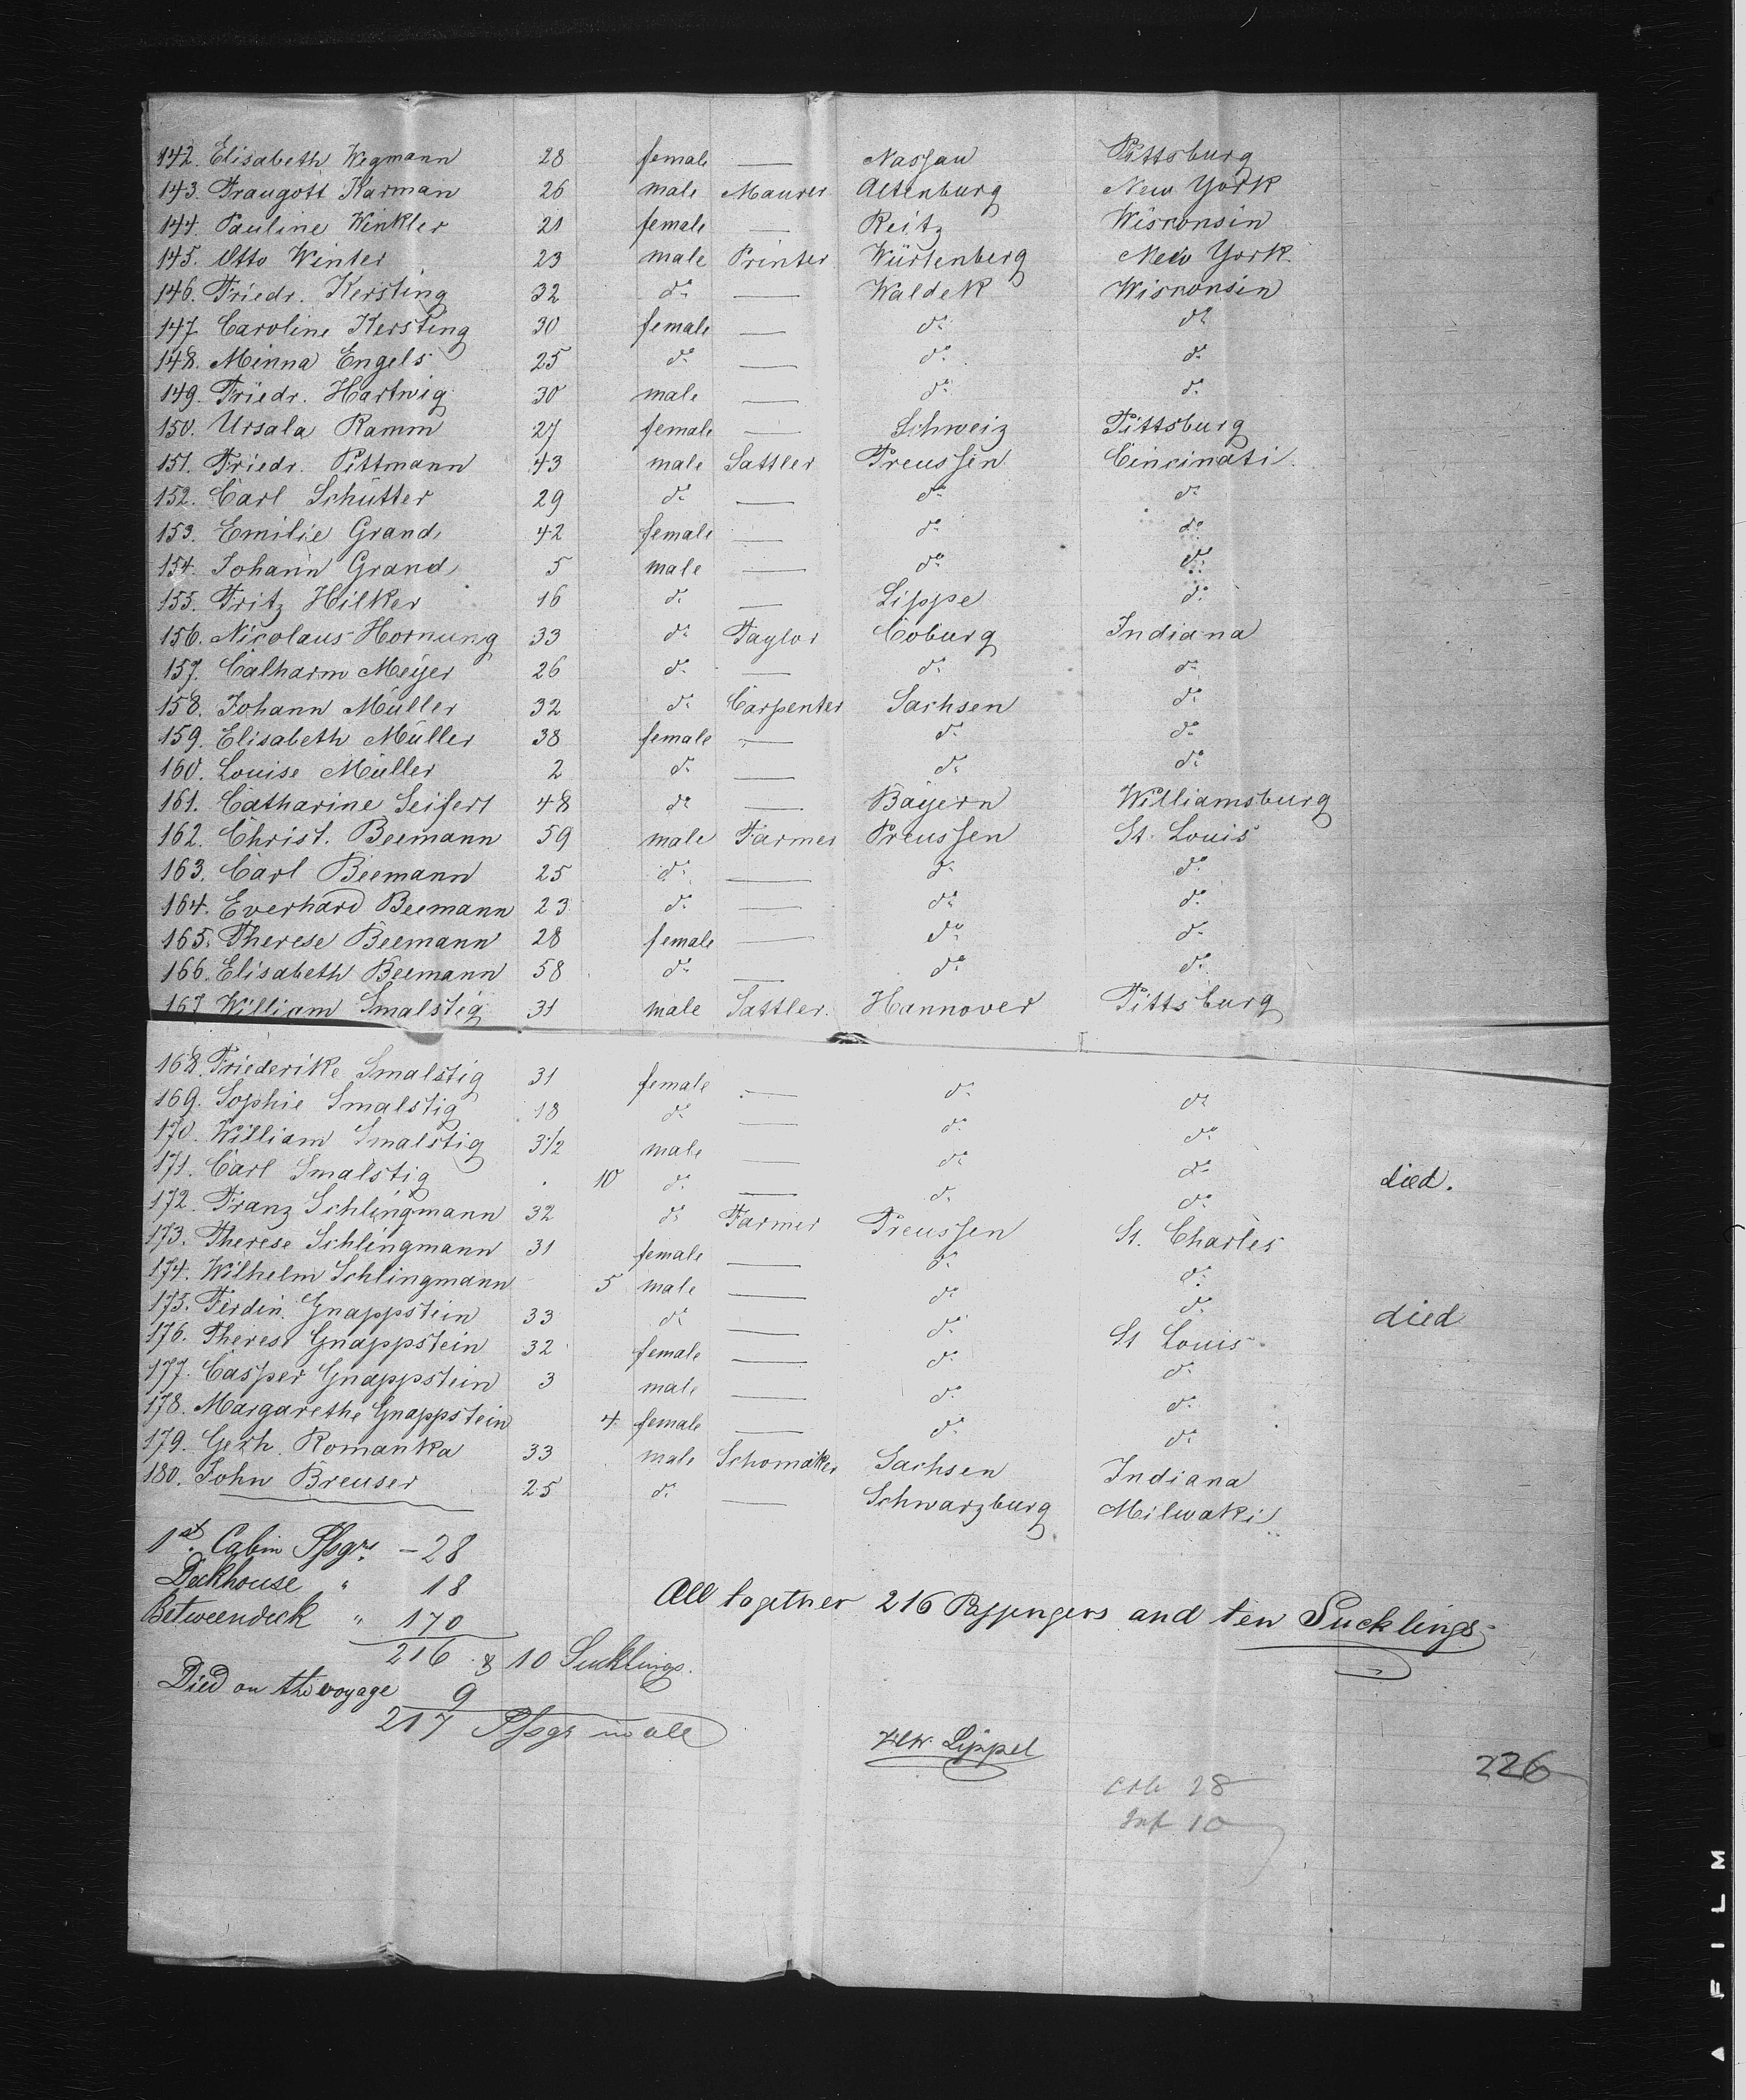 142. Elisabeth Wegmann 28 female — Nassau Pittsburg
143. Traugott Karman 26 male Maurer Altenburg New York
144. Pauline Winkler 21 female — Reitz Wisconsin
145. Otto Winter 23 male Printer Würtenberg New York
146. Friedr. Kersting 32 do — Waldek Wisconsin
147. Caroline Kersting 30 female — do do
148. Minna Engels 25 do — do do
149. Friedr. Hartwig 30 male — do do
150. Ursala Ramm 27 female — Schweiz Pittsburg
151. Friedr. Pittmann 43 male Sattler Preussen Cincinati.
152. Carl Schütter 29 do — do do
153. Emilie Grand 42 female — do do
154. Johann Grand 5 male — do do
155. Fritz Hilker 16 do — Lippe do
156. Nicolaus Hornung 33 do Taylor Coburg Indiana
157. Calharm Meyer 26 do — do do
158. Johann Müller 32 do Carpenter Sachsen do
159. Elisabeth Müller 38 female — do do
160. Louise Müller 2 do — do do
161. Catharine Seifert 48 do — Bayern Williamsburg
162. Christ. Beemann 59 male Farmer Preussen St. Louis
163. Carl Beemann 25 do — do do
164. Everhard Beemann 23 do — do do
165. Therese Beemann 28 female — do do
166. Elisabeth Beemann 58 do — do do
167 William Smalstig 31 male Sattler. Hannover Pittsburg
168. Friederike Smalstig 31 female — do do
169. Sophie Smalstig 18 do — do do
170. William Smalstig 3 1/2 male — do do
171. Carl Smalstig 10 do — do do died.
172. Franz Schlingmann 32 do Farmer Preussen St. Charles
173. Therese Schlingmann 31 female — do do
174. Wilhelm Schlingmann 5 male — do do died
175. Ferdin. Gnappstein 33 do — do St Louis
176. Therese Gnappstein 32 female — do do
177. Casper Gnappstein 3 male — do do
178. Margarethe Gnappstein 4 female — do do
179. Gerh. Romanka 33 male Schomaker Sachsen Indiana
180. John Breuser 25 do — Schwarzburg Milwaki
1st. Cabin Pssgrs – 28
Deckhouse " 18
Betweendeck " 170
All together 216 Passengers and ten Sucklings
216 & 10 Sucklings.
Died on the voyage 9
217 Pssgr in all
Lippel
226
28
Inf 10
A FILM